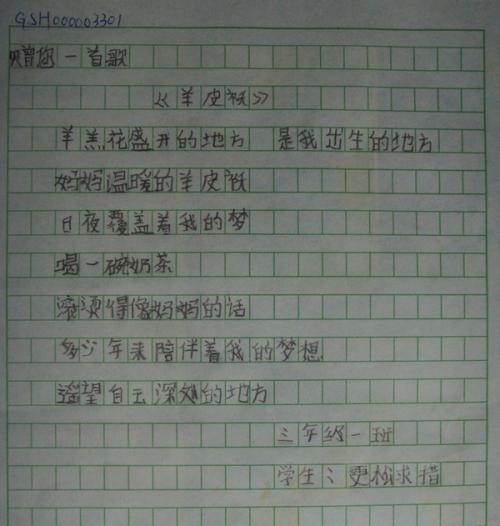 GSH000003301
赠您一首歌
《羊皮袄》
羊羔花盛开的地方 是我出生的地方
妈妈温暖的羊皮袄
日夜覆盖着我的梦
喝一碗奶茶
滚烫得像妈妈的话
多少年来陪伴着我的梦想
遥望白云深处的地方
三年级一班
学生：更松求措